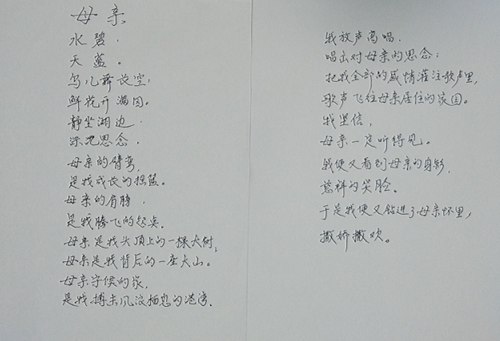 母亲
水碧.
天蓝.
鸟儿舞长空;
鲜花开满园.
静坐湖边.
深思念.
母亲的臂弯,
是我成长的摇篮.
母亲的肩膀.
是我腾飞的起点.
母亲是我头顶上的一棵大树,
母亲是我背后的一座大山.
母亲守侯的家,
是我搏击风浪栖息的港湾.
我放声高唱.
唱出对母亲的思念;
把我全部的感情灌注歌声里,
歌声飞往母亲居住的家园.
我坚信,
母亲一定听得见.
我便又看到母亲的身影,
慈祥的笑脸.
于是我便又钻进了母亲怀里,
撒娇撒欢.